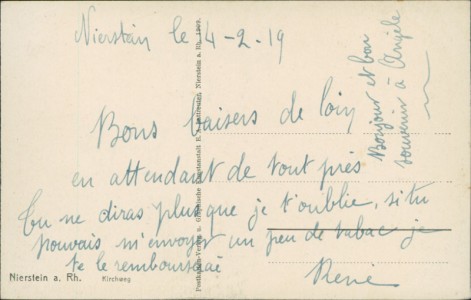 Nierstein le 4-2-19
Bons baisers de loin
en attendant de tout près
Tu ne diras plus que je t'oublie, si tu
pouvais m'envoyer un peu de tabac je
te le rembourserai
René
Bonjour et bon
souvenir à Angèle
Nierstein a. Rh. Kirchweg